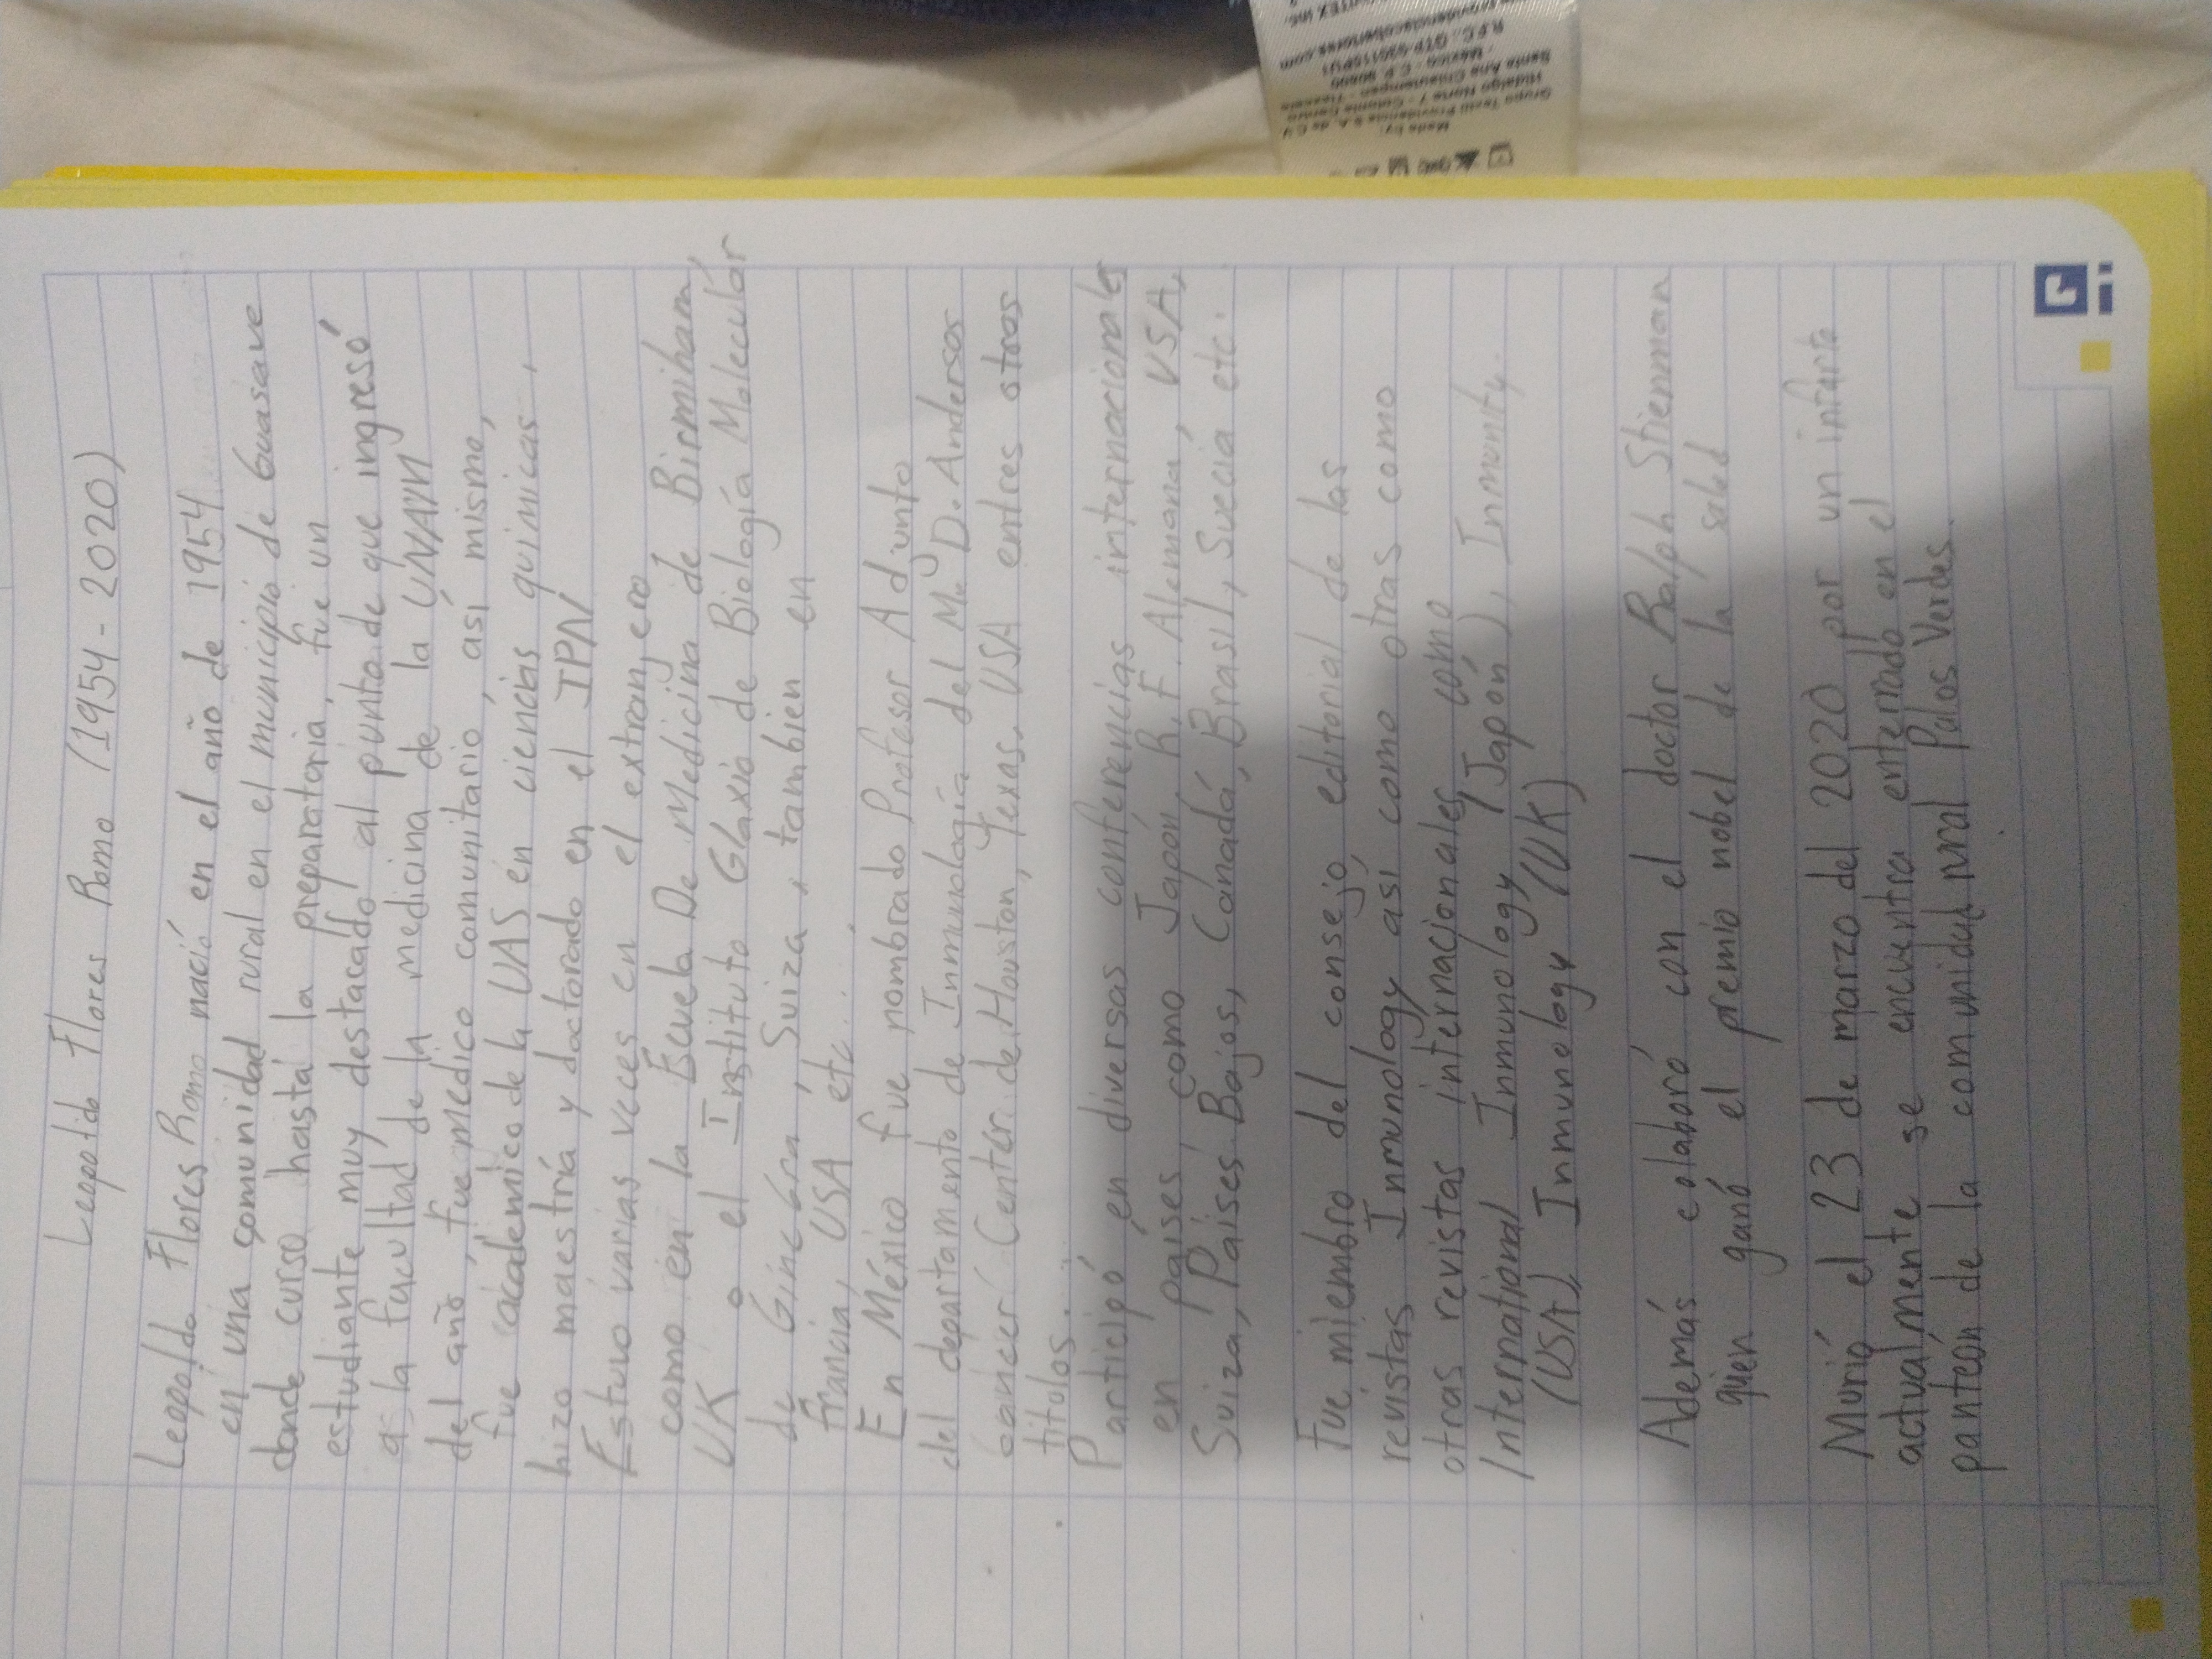 Leopoldo Flores Romo (1954-2020)
Leopoldo Flores Romo nació en el año de 1954
en una comunidad rural en el municipio de Guasave
donde curso hasta la preparatoria, fue un
estudiante muy destacado al punto de que ingresó
a la facultad de la medicina de la UNAM
del año, fue medico comunitario, así mismo,
fue academico de la UAS en ciencias quimicas,
hizo maestría y doctorado en el IPN
Estuvo varias veces en el extranjero
como en la Escuela De Medicina de Birmiham,
UK o el Instituto Glaxio de Biología Moleculár
de Ginebra, Suiza, tambien en
Francia, USA etc..
En México fue nombrado Profesor Adjunto
del departamento de Inmunología del M. D. Anderson
cancer Center de Houston, Texas. USA entres otros
titulos.
Participó en diversas conferencias internacionales
en países como Japón, R.F. Alemana, USA,
Suiza, Países Bajos, Cánadá, Brasil, Suecia etc.
Fue miembro del consejo editorial de las
revistas Inmunology así como otras como
otras revistas internacionales como
International Inmunology (Japón), Inmunity
(USA), Inmunology (UK)
Además colaboró con el doctor Ralph Stienman
quien ganó el premio nobel de la salud
Murió el 23 de marzo del 2020 por un infarto
actualmente se encuentra enterrado en el
panteón de la comunidad rural Palos Verdes.
Made by:
Grupo Textil Providencia S.A. de C.V.
Hidalgo Norte 7 - Colonia Centro
Santa Ana Chiautempan - Tlaxcala
- México - C.P. 90800